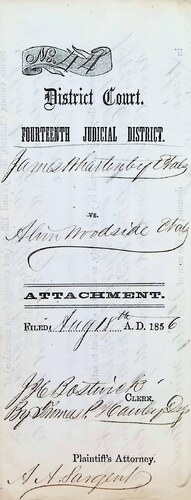 No. 44
District Court.
FOURTEENTH JUDICIAL DISTRICT.
James Whartenby et als
vs.
Alvin Woodside et als
ATTACHMENT.
FILED, Aug 11th A. D. 1856
J H Bostwick
CLERK,
By Thomas P Hawley Dep
Plaintiff's Attorney.
A. A. Sargent